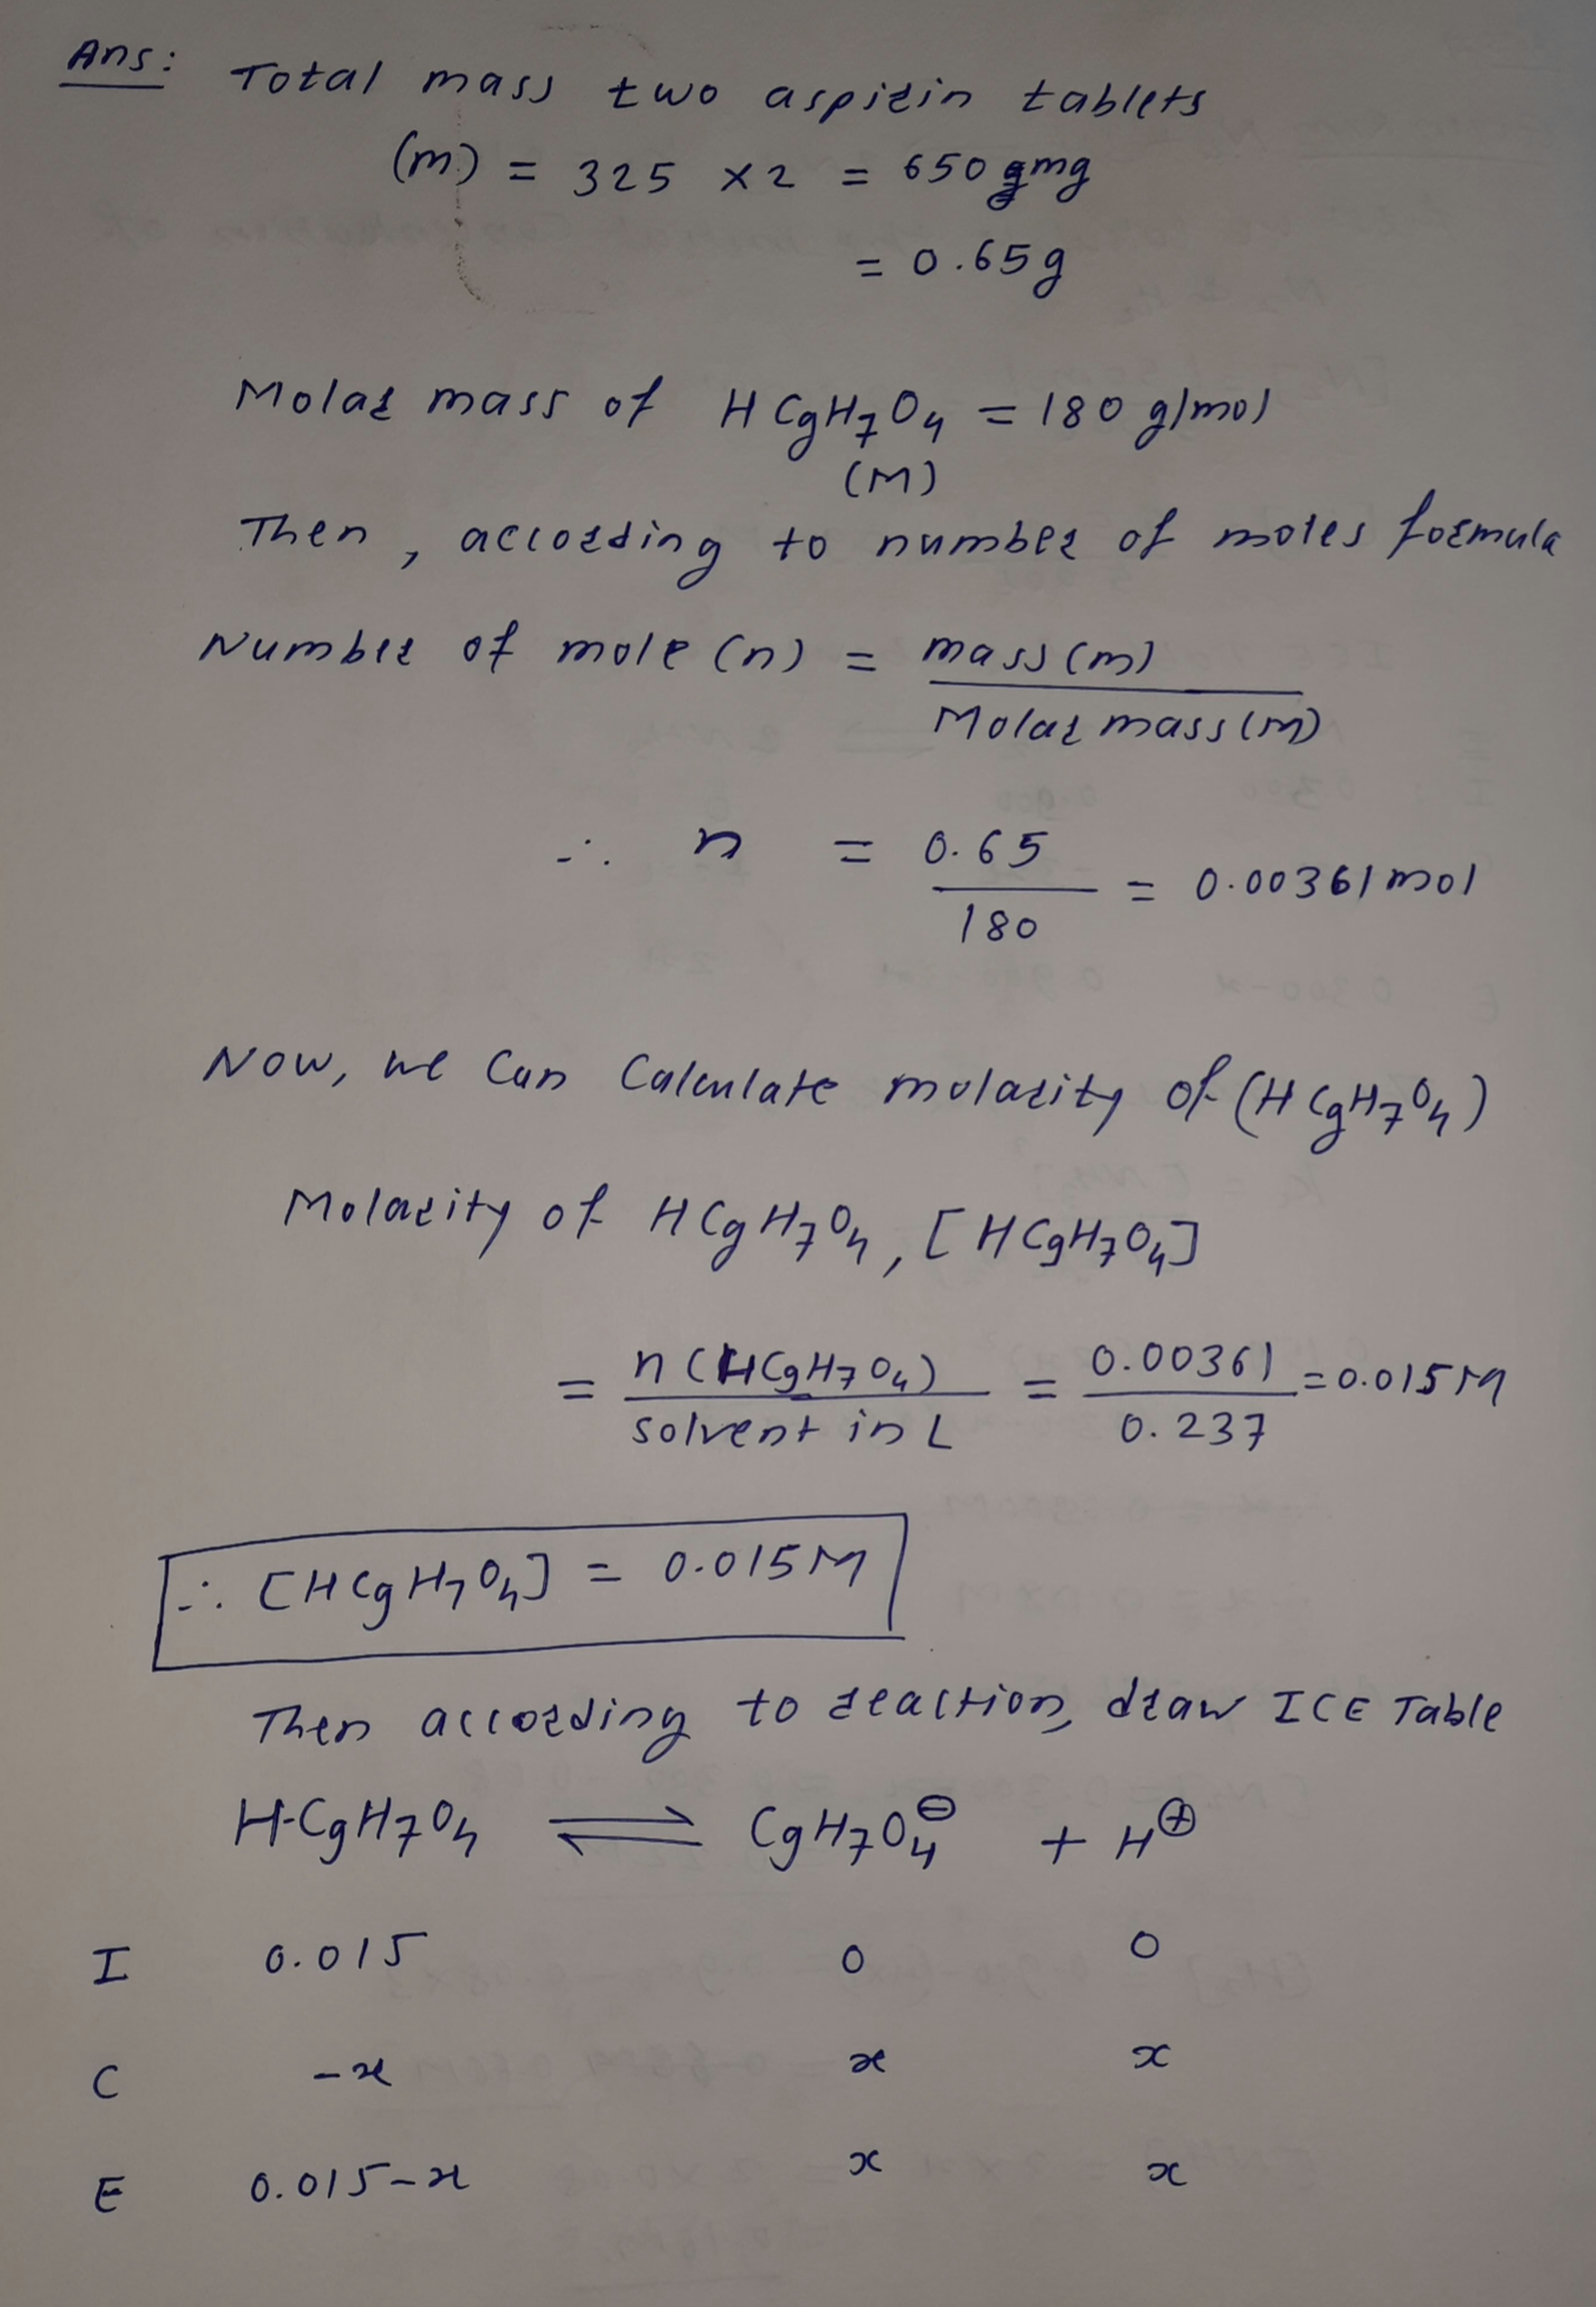 Ans: Total mass two aspirin tablets
(m) = 325 × 2 = 650 mg
= 0.65g
Molar mass of HC9H7O4 = 180 g/mol
(M)
Then, according to number of moles formula
Number of mole (n) = mass (m)
Molar mass (M)
∴ n = 0.65
180
= 0.00361 mol
Now, we Can Calculate molarity of (HC9H7O4)
Molarity of HC9H7O4, [HC9H7O4]
= n (HC9H7O4) = 0.00361 = 0.015M
solvent in L 0.237
∴ [HC9H7O4] = 0.015M
Then according to reaction, draw ICE Table
H-C9H7O4 ⇌ C9H7O4⊖ + H⊕
I 0.015 0 0
C -x x x
E 0.015-x x x